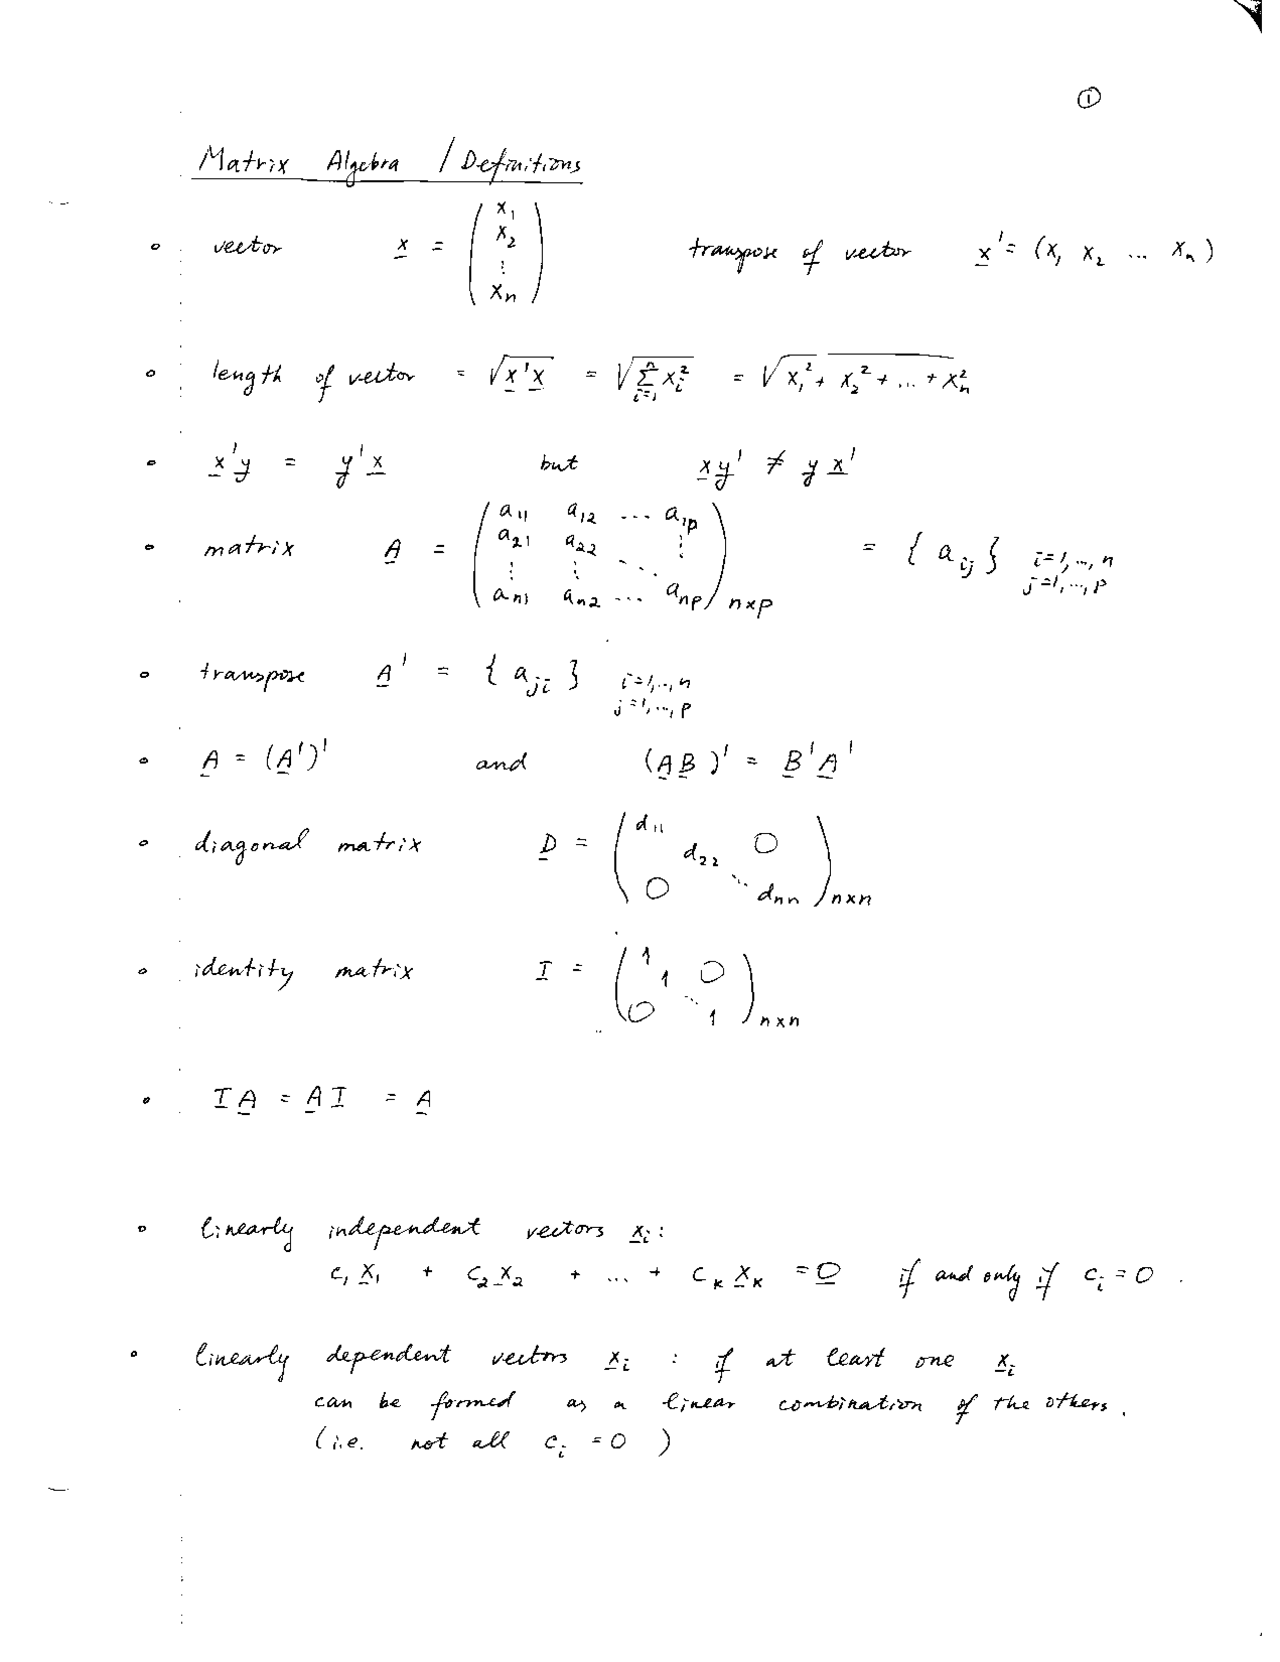 ①
Matrix Algebra / Definitions
∘ vector x̲ = (x₁ x₂ ⋮ xₙ) transpose of vector x̲' = (x₁ x₂ ... xₙ)
∘ length of vector = √x̲'x̲ = √∑ᵢ₌₁ⁿ xᵢ² = √x₁² + x₂² + ... + xₙ²
∘ x̲'y̲ = y̲'x̲ but x̲y̲' ≠ y̲x̲'
∘ matrix A̲ = (a₁₁ a₁₂ ... a₁ₚ
a₂₁ a₂₂ ⋮
⋮ ⋮ ⋱
aₙ₁ aₙ₂ ... aₙₚ)ₙₓₚ = { aᵢⱼ } i=1,...,n
j=1,...,p
∘ transpose A̲' = { aⱼᵢ } i=1,...,n
j=1,...,p
∘ A̲ = (A̲')' and (A̲B̲)' = B̲'A̲'
∘ diagonal matrix D̲ = (d₁₁ d₂₂ 0
0 ⋱ dₙₙ)ₙₓₙ
∘ identity matrix I̲ = (1 1 0
0 ⋱ 1)ₙₓₙ
∘ I̲A̲ = A̲I̲ = A̲
∘ linearly independent vectors x̲ᵢ:
c₁x̲₁ + c₂x̲₂ + ... + cₖx̲ₖ = 0̲ if and only if cᵢ = 0.
∘ linearly dependent vectors x̲ᵢ : if at least one x̲ᵢ
can be formed as a linear combination of the others.
(i.e. not all cᵢ = 0 )